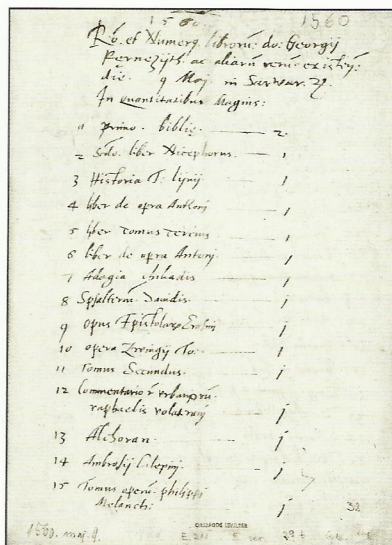 1560. 1560
Ro. et Numerg. librorū. do: Georgij
Pernezith. ac aliarū rerū existen:
die. 9 Maj. in Sarwar. 27.
In quantitatibus Magnis:
1 primo. biblie. — 2
2 Scdo. liber Nicephorus. — 1
3 Historia T: Liuij — 1
4 liber de opra Anthonj — j
5 liber Tomus Tercius — 1
6 liber de opra Antonj. — j
7 Adagia chiliadis — 1
8 Spalteriū Dauidis — j
9 opus Epistolarū Erasmi — j
10 opera Zwingij To: — j
11 Tomus Secundus. — j
12 Commentarior vrbanorū.
raphaelis volateranj — j
13 Alchoran. — j
14 Ambrosij Calepinj — j
15 Tomus operū. philippi
Melancti: — j
32
ORSZÁGOS LEVÉLTÁR
1560. maj. 9. E 211